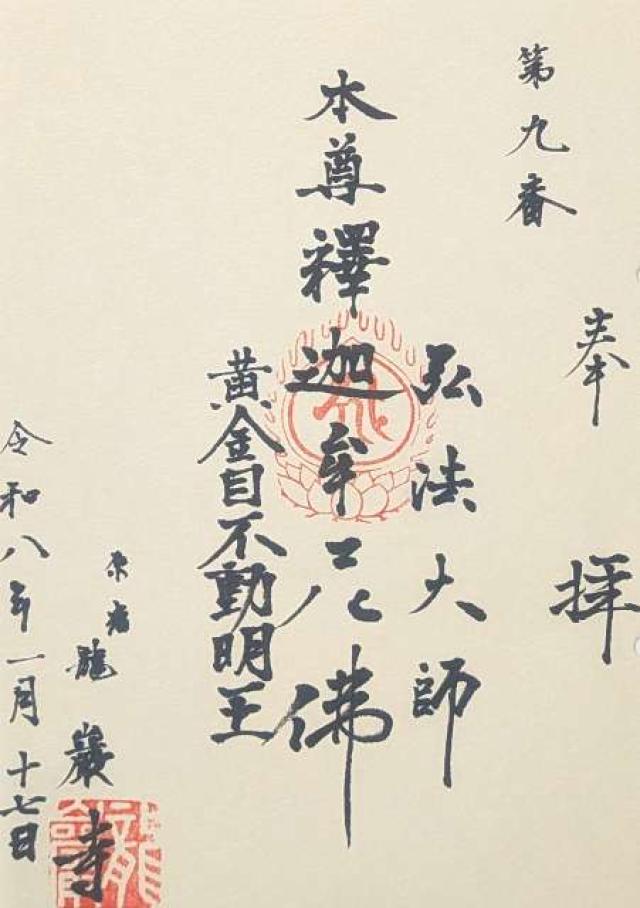 第九番
奉拝
弘法大師
本尊釋迦牟尼佛
黄金目不動明王
龍巖寺
令和八年一月十七日